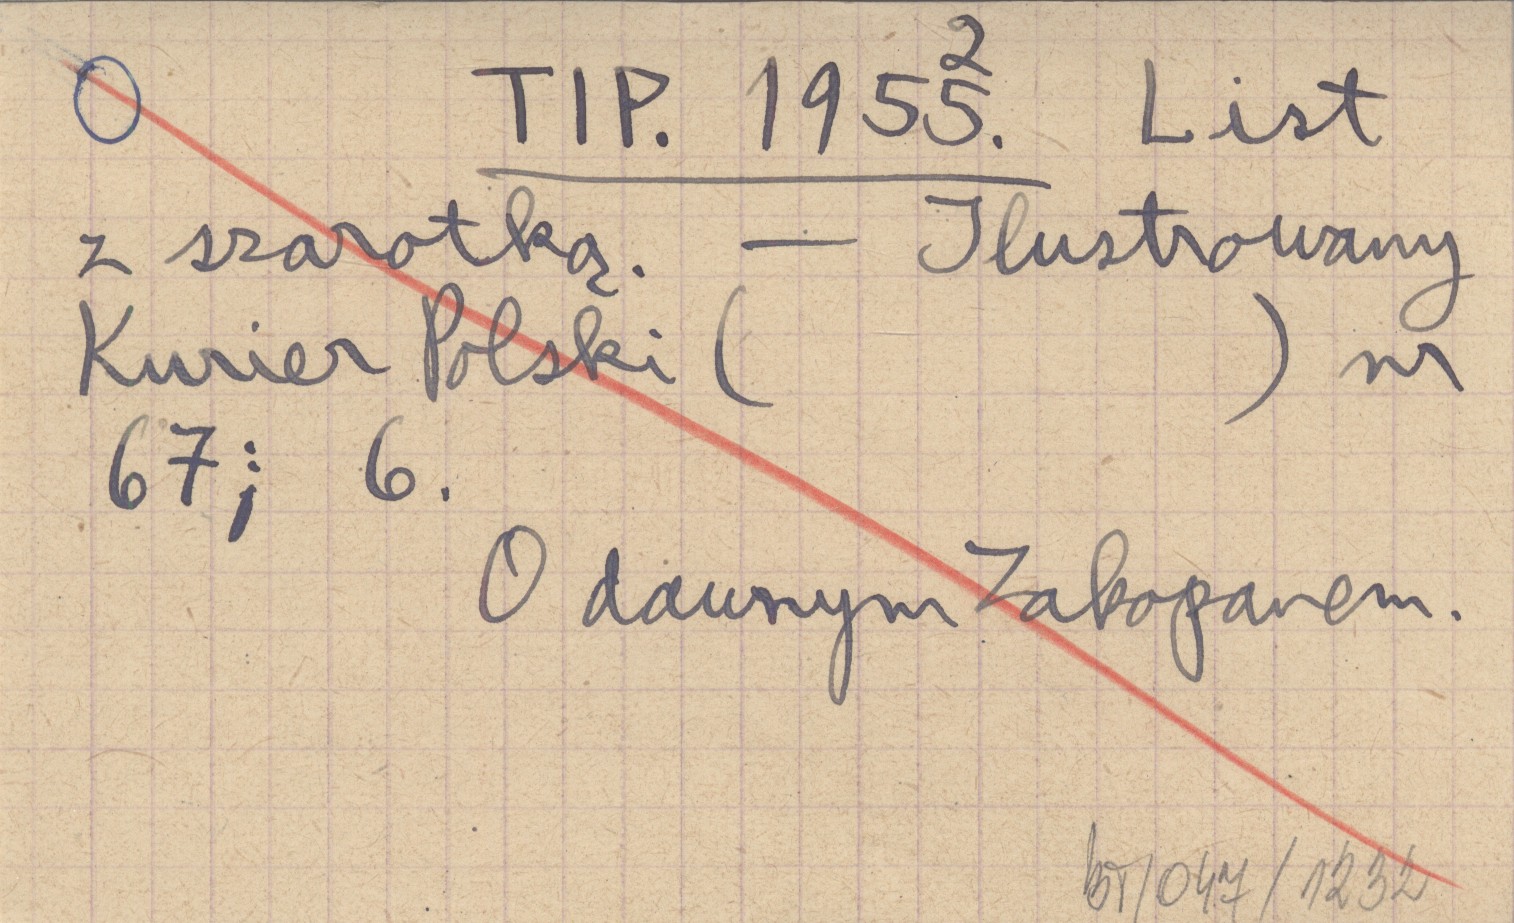 O TIP. 1955.² List
z szarotką. — Ilustrowany
Kurier Polski ( ) nr
67; 6.
O dawnym Zakopanem.
BT/047/1232